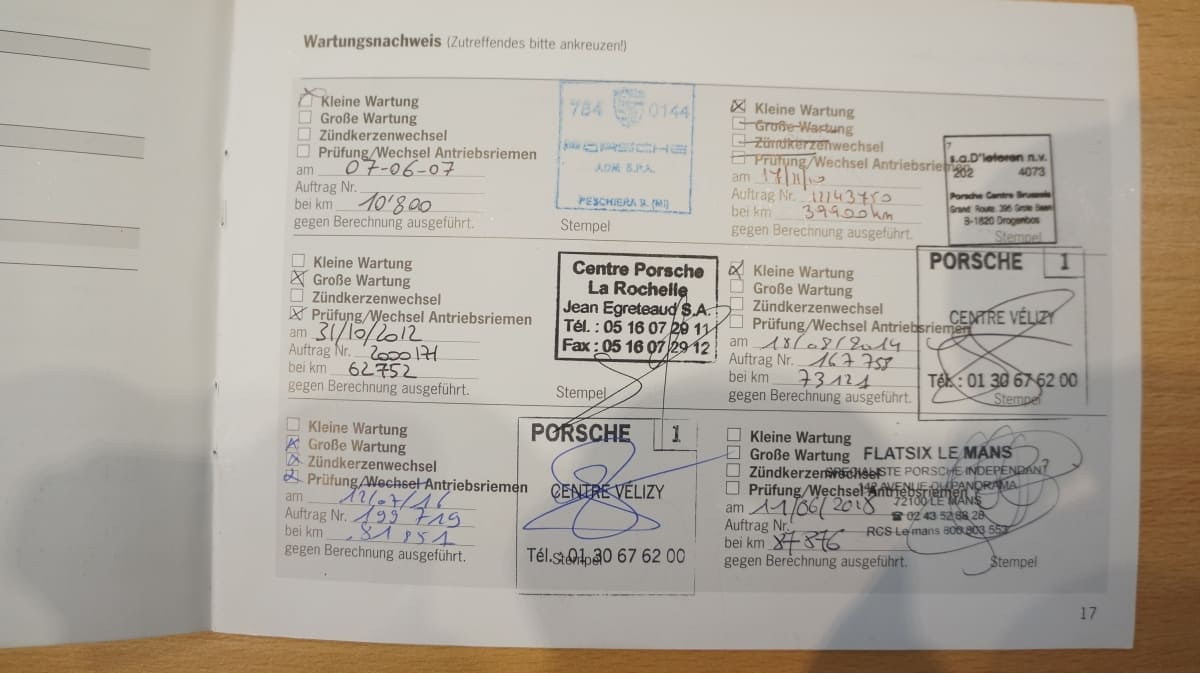 Wartungsnachweis (Zutreffendes bitte ankreuzen!)
Kleine Wartung
Große Wartung
Zündkerzenwechsel
Prüfung/Wechsel Antriebsriemen
am 07-06-07
Auftrag Nr.
bei km 10'800
gegen Berechnung ausgeführt.
784 0144
PORSCHE
ADM S.P.A.
PESCHIERA B. (MI)
Stempel
Kleine Wartung
Große Wartung
Zündkerzenwechsel
Prüfung/Wechsel Antriebsriemen
am 17/11/10
Auftrag Nr. 11143750
bei km 39900km
gegen Berechnung ausgeführt.
s.a.D'Ieteren n.v.
202 4073
Porsche Centre Brussels
Grand Route, 395 Grote Baan
B-1620 Drogenbos
Stempel
Kleine Wartung
Große Wartung
Zündkerzenwechsel
Prüfung/Wechsel Antriebsriemen
am 31/10/2012
Auftrag Nr. 2000171
bei km 62752
gegen Berechnung ausgeführt.
Centre Porsche
La Rochelle
Jean Egreteaud S.A.
Tél. : 05 16 07 29 11
Fax : 05 16 07 29 12
Stempel
Kleine Wartung
Große Wartung
Zündkerzenwechsel
Prüfung/Wechsel Antriebsriemen
am 18/08/2014
Auftrag Nr. 167758
bei km 73121
gegen Berechnung ausgeführt.
PORSCHE 1
CENTRE VÉLIZY
Tél. : 01 30 67 62 00
Stempel
Kleine Wartung
Große Wartung
Zündkerzenwechsel
Prüfung/Wechsel Antriebsriemen
am 12/07/16
Auftrag Nr. 199719
bei km 81851
gegen Berechnung ausgeführt.
PORSCHE 1
CENTRE VÉLIZY
Tél. : 01 30 67 62 00
Stempel
Kleine Wartung
Große Wartung
Zündkerzenwechsel
Prüfung/Wechsel Antriebsriemen
am 11/06/2018
Auftrag Nr.
bei km 87876
gegen Berechnung ausgeführt.
FLATSIX LE MANS
SPECIALISTE PORSCHE INDEPENDANT
AVENUE DU PANORAMA
72100 LE MANS
☎ 02 43 52 88 28
RCS Le mans 800 803 553
Stempel
17